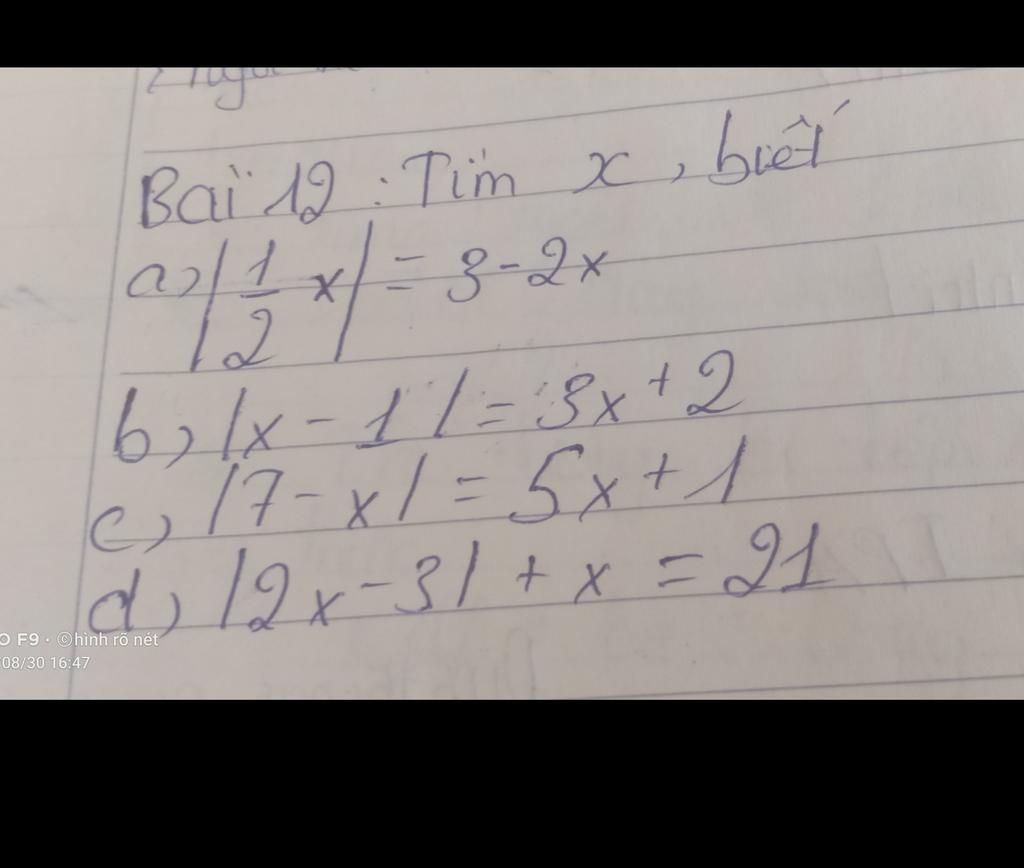 Bài 12 : Tìm x, biết
a) |1/2 x| = 3 - 2x
b) |x - 1| = 3x + 2
c) |7 - x| = 5x + 1
d) |2x - 3| + x = 21
F9 · ©hình rõ nét
/08/30 16:47